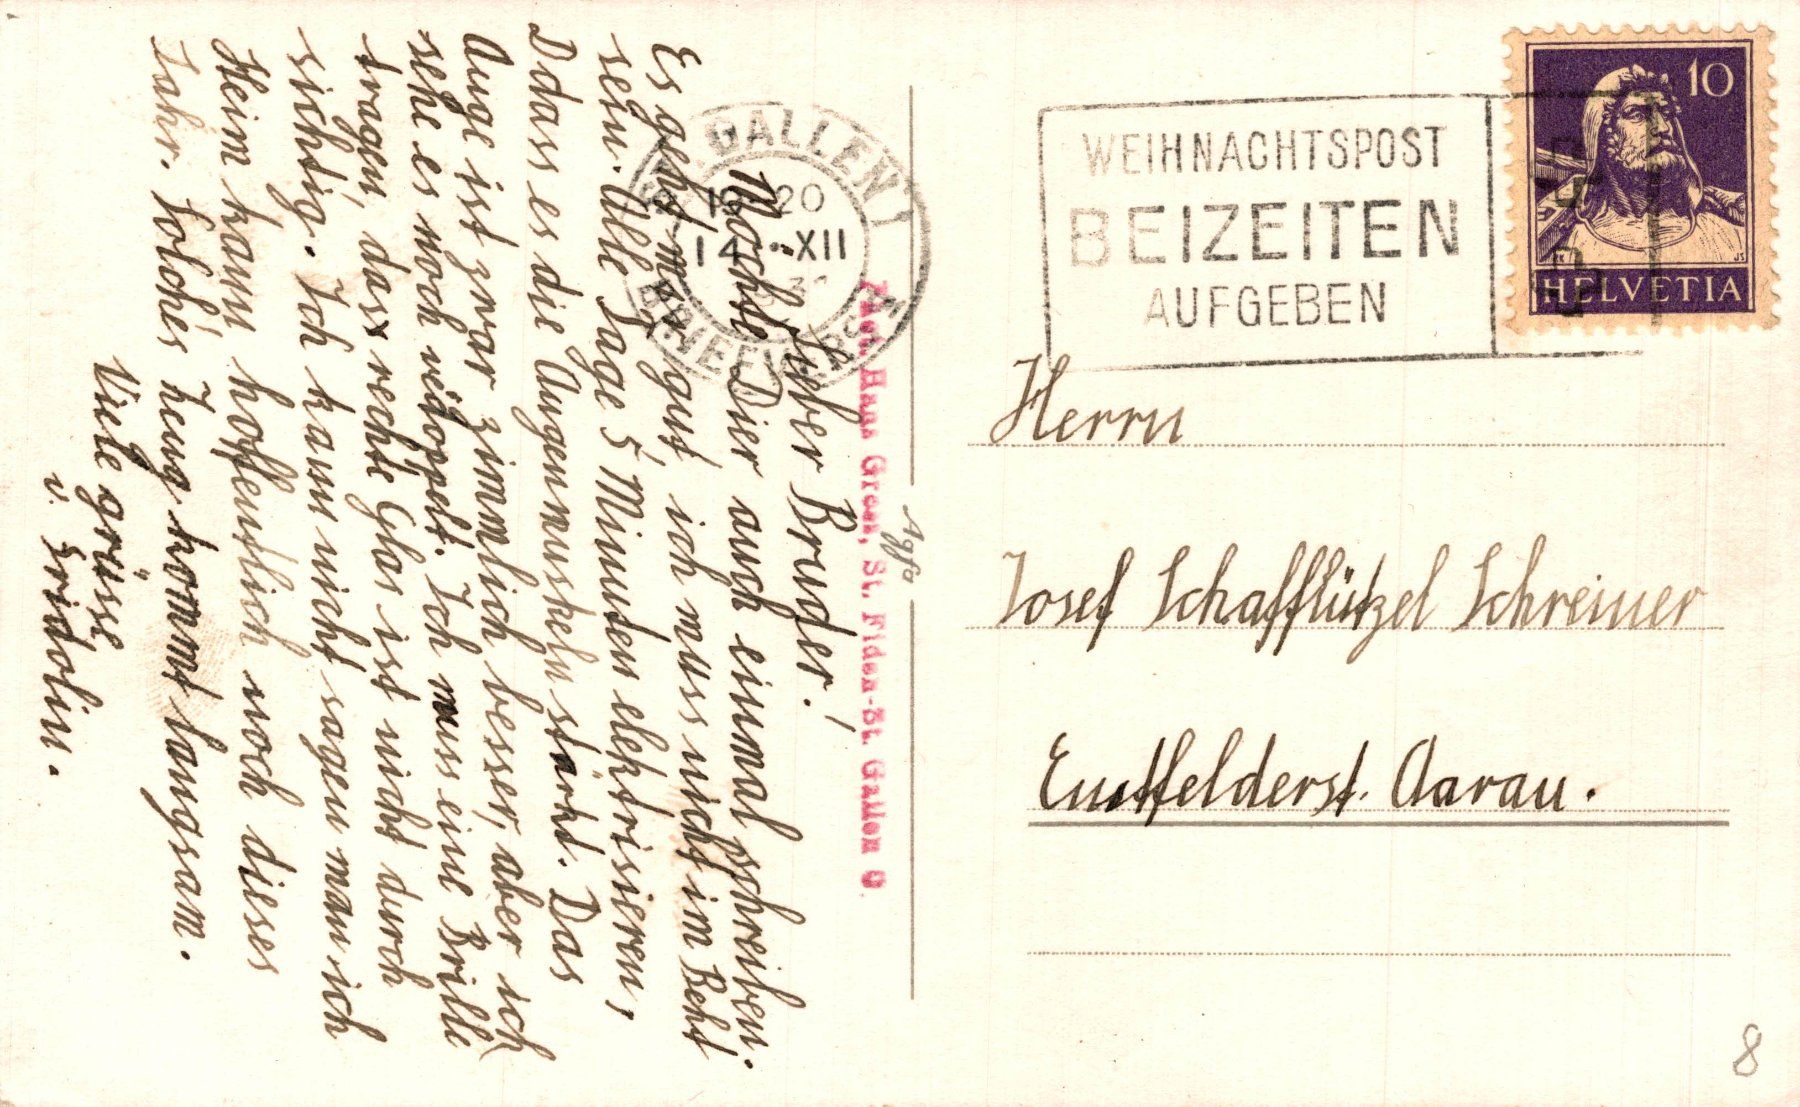 Lieber Bruder!
Möchte Dier auch einmal schreiben.
Es geht mir gut, ich muss nicht im Beht
sein. Alle Tage 5 Minuten elektrisieren,
Ddass es die Augenmuskeln stärkt. Das
Auge ist zwar zimmlich besser, aber ich
sehe es noch verdoppelt. Ich muss eine Brille
tragen, dass rechte Glas ist nicht durch
sichtig. Ich kann nicht sagen wan ich
Heim kann hoffentlich noch dieses
Jahr. Solches Zeug kommt langsam.
Viele grüsse
v. Fridolin.
Phot. Hans Gross, St. Fiden-St. Gallen O.
Agfa
ST. GALLEN 1
20
14. XII
BRIEFVERS
WEIHNACHTSPOST
BEIZEITEN
AUFGEBEN
10
HELVETIA
Herrn
Josef Schafflützel Schreiner
Entfelderst. Aarau.
8